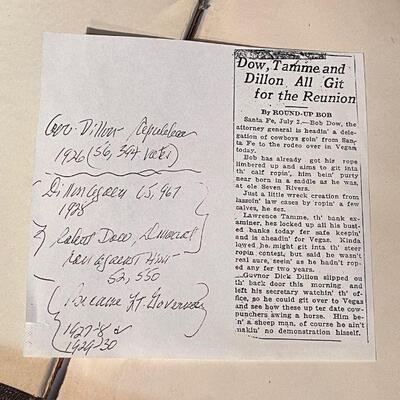 Gov Dillon, Republican
1926 (56, 344 votes)
Dillon again 65,967
1928
Robert Dow, Democrat
ran against Him
52,550
Became Lt. Governor
1927-8 &
1929-30
Dow, Tamme and
Dillon All Git
for the Reunion
By ROUND-UP BOB
Santa Fe, July 2.—Bob Dow, the
attorney general is headin' a dele-
gation of cowboys goin' from San-
ta Fe to the rodeo over in Vegas
today.
Bob has already got his rope
limbered up and aims to git into
th' calf ropin', him bein' purty
near born in a saddle as he was,
at ole Seven Rivers.
Just a little wreck creation from
lassoin' law cases by ropin' a few
calves, he sez.
Lawrence Tamme, th' bank ex-
aminer, hez locked up all his bust-
ed banks today fer safe keepin'
and is aheadin' for Vegas. Kinda
lowed he might git inta th' steer
ropin contest, but said he wasn't
real sure, seein' as he hadn't rop-
ed any fer two years.
Guvnor Dick Dillon slipped out
th' back door this morning and
left his secretary watchin' th' of-
fice, so he could git over to Vegas
and see how these up ter date cow-
punchers swing a horse. Him be-
in' a sheep man, of course he ain't
makin' no demonstration hisself.